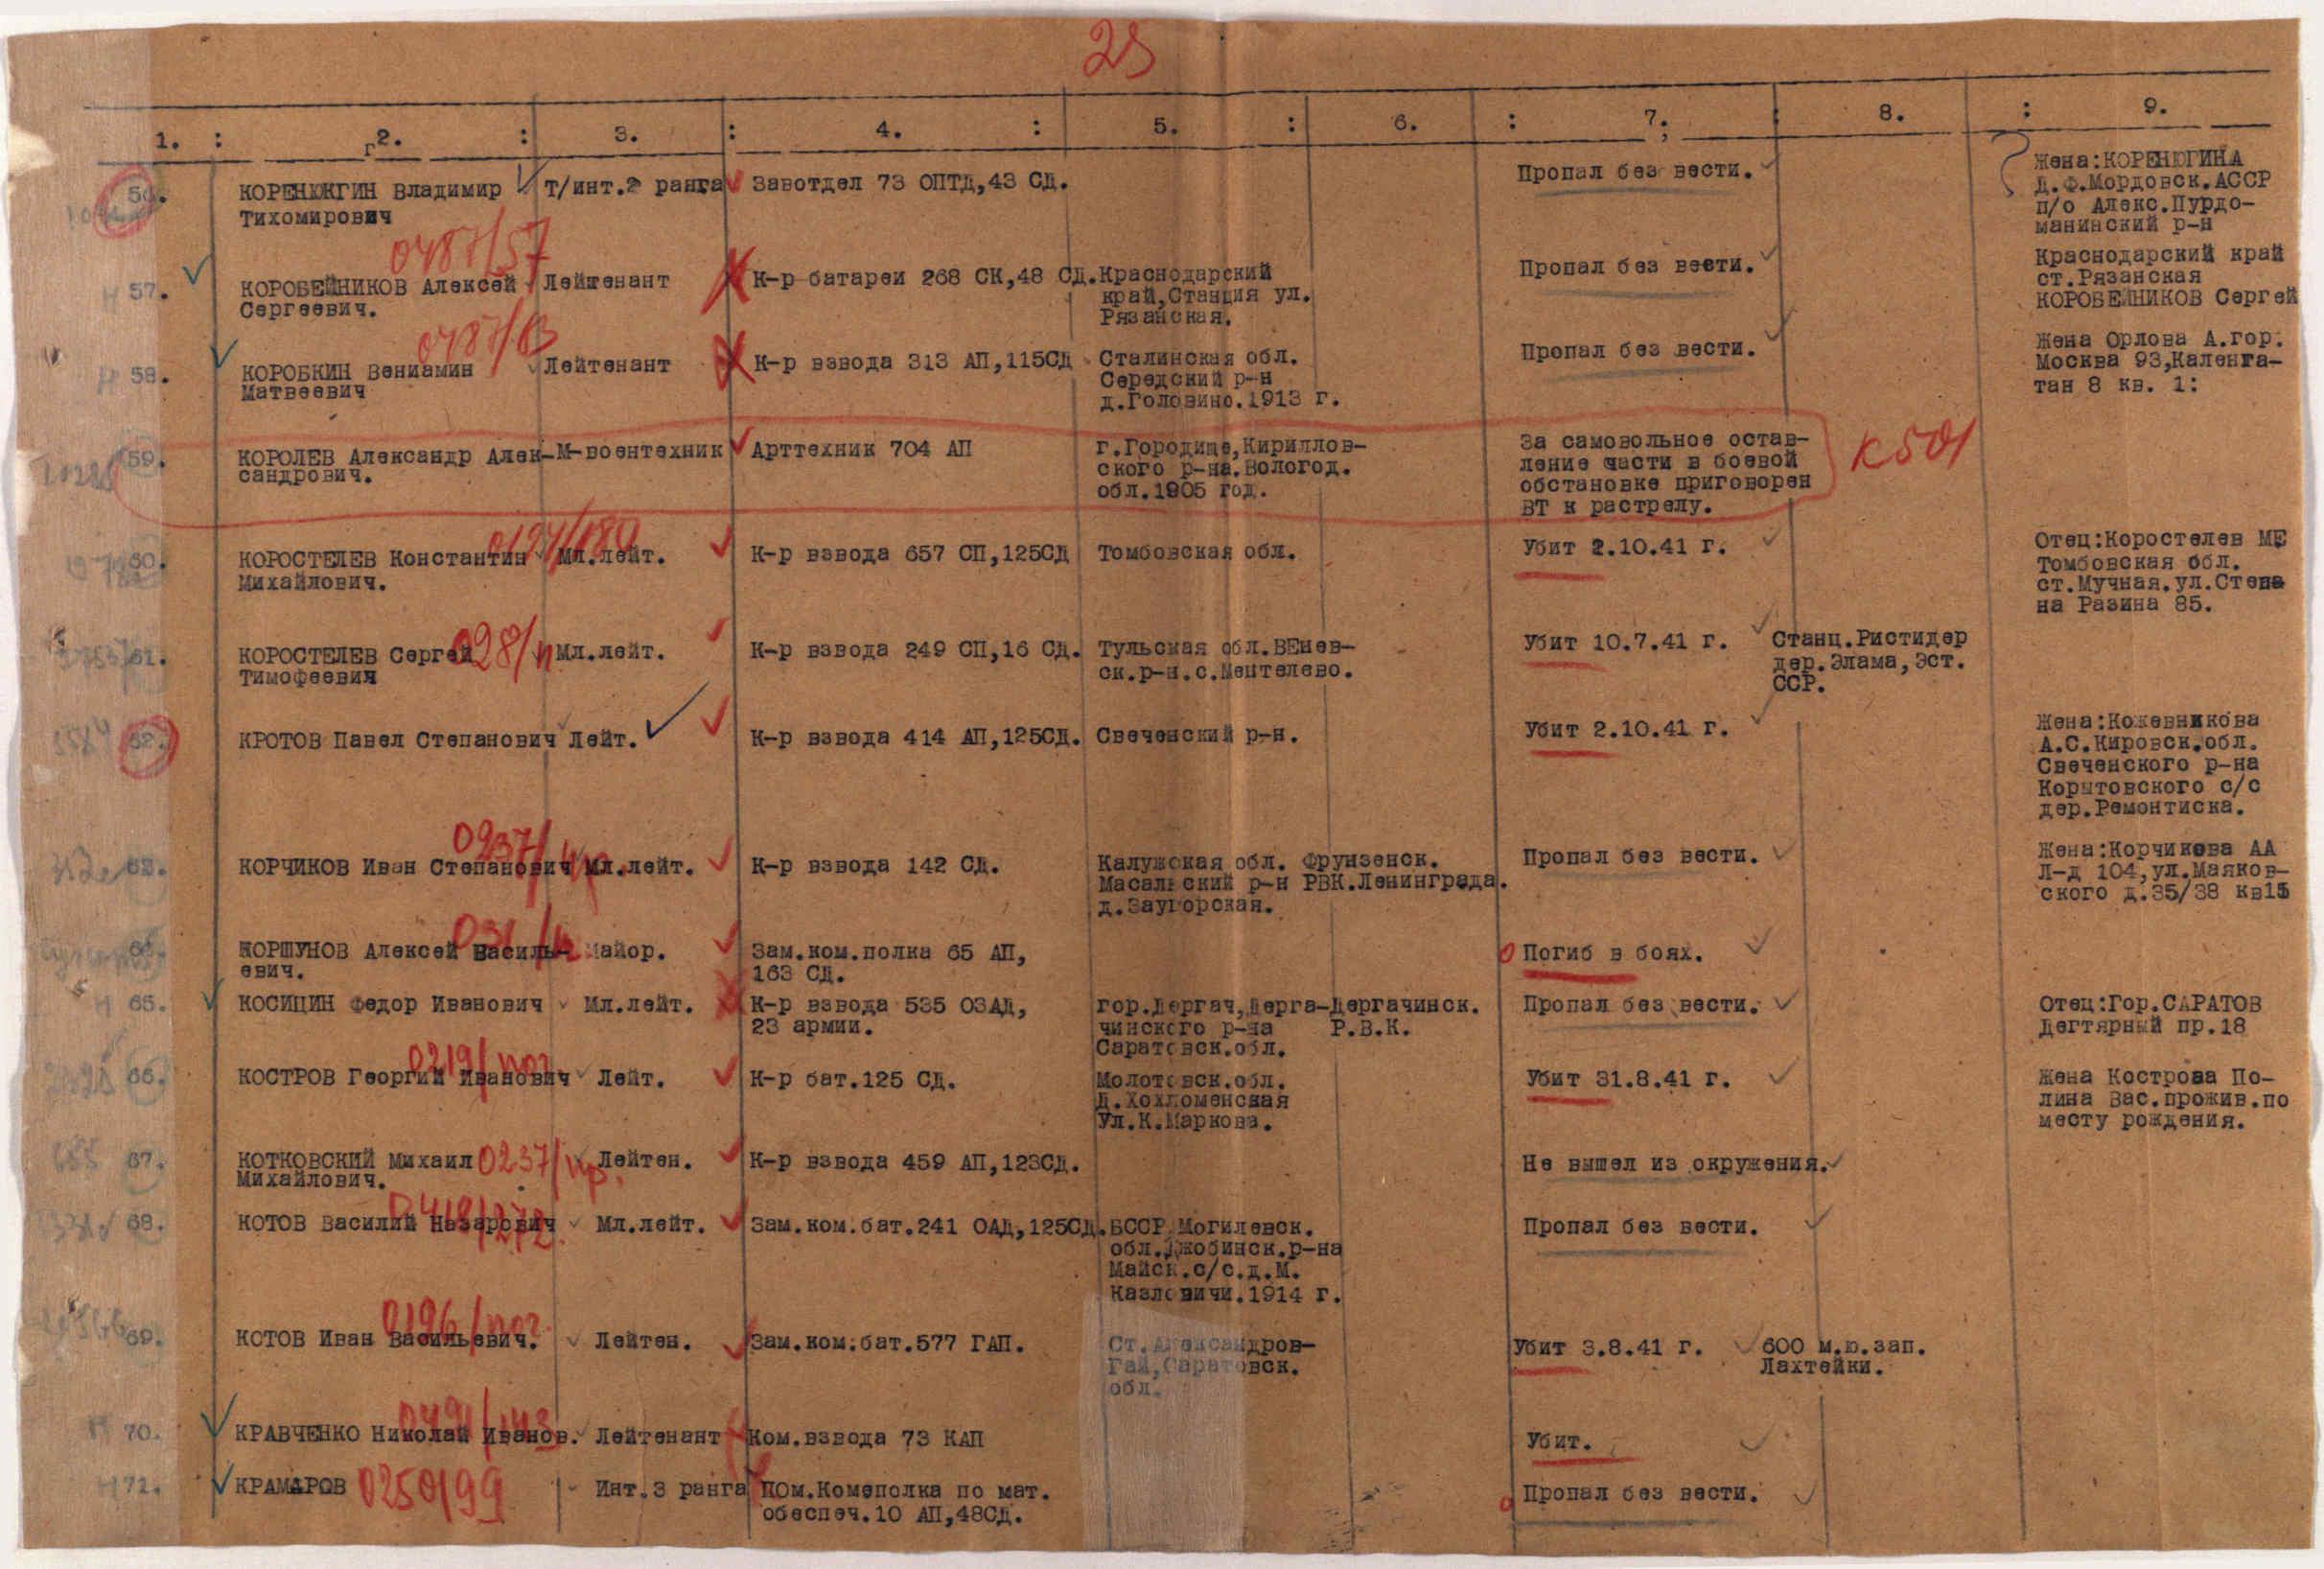 25
1. : 2. : 3. : 4. : 5. : 6. : 7. : 8. : 9.
56. КОРЕНЮКГИН Владимир Т/инт.2 ранга Завотдел 73 ОПТД,43 СД. Пропал без вести. Жена:КОРЕНЮГИНА
Тихомирович Д.Ф.Мордовск.АССР
п/о Алекс.Пурдо-
манинский р-н
0487/57
57. КОРОБЕЙНИКОВ Алексей Лейтенант К-р батареи 268 СК,48 СД. Краснодарский Пропал без вести. Краснодарский край
Сергеевич. край,Станция ул. ст.Рязанская
Рязанская. КОРОБЕЙНИКОВ Сергей
58. КОРОБКИН Вениамин Лейтенант К-р взвода 313 АП,115СД Сталинская обл. Пропал без вести. Жена Орлова А.гор.
Матвеевич Середский р-н Москва 93,Каленга-
д.Головино.1913 г. тан 8 кв. 1:
59. КОРОЛЕВ Александр Алек- М-воентехник Арттехник 704 АП г.Городище,Кириллов- За самовольное остав- К501
сандрович. ского р-на.Вологод. ление части в боевой
обл.1905 год. обстановке приговорен
ВТ к растрелу.
60. КОРОСТЕЛЕВ Константин Мл.лейт. К-р взвода 657 СП,125СД Томбовская обл. Убит 2.10.41 г. Отец:Коростелев МЕ
Михайлович. Томбовская обл.
ст.Мучная.ул.Степа
на Разина 85.
61. КОРОСТЕЛЕВ Сергей Мл.лейт. К-р взвода 249 СП,16 СД. Тульская обл.ВЕнев- Убит 10.7.41 г. Станц.Ристидер
Тимофеевия ск.р-н.с.Мештелево. дер.Элама,Эст.
ССР.
62. КРОТОВ Павел Степанович Лейт. К-р взвода 414 АП,125СД. Свеченский р-н. Убит 2.10.41 г. Жена:Кожевникова
А.С.Кировск.обл.
Свеченского р-на
Корытовского с/с
дер.Ремонтиска.
0237/
63. КОРЧИКОВ Иван Степанович Мл.лейт. К-р взвода 142 СД. Калужская обл. Фрунзенск. Пропал без вести. Жена:Корчикова АА
Масальский р-н РВК.Ленинграда. Л-д 104,ул.Маяков-
д.Заугорская. ского д.35/38 кв15
64. КОРШУНОВ Алексей Василь- Майор. Зам.ком.полка 65 АП, Погиб в боях.
евич. 163 СД.
65. КОСИЦИН Федор Иванович Мл.лейт. К-р взвода 535 ОЗАД, гор.Дергач,Дерга- Дергачинск. Пропал без вести. Отец:Гор.САРАТОВ
23 армии. чинского р-на Р.В.К. Дегтярный пр.18
Саратовск.обл.
0219/пог
66. КОСТРОВ Георгий Иванович Лейт. К-р бат.125 СД. Молотовск.обл. Убит 31.8.41 г. Жена Кострова По-
Д.Хохломенская лина Вас.прожив.по
Ул.К.Маркова. месту рождения.
67. КОТКОВСКИЙ Михаил 0237/пр. Лейтен. К-р взвода 459 АП,123СД. Не вышел из окружения.
Михайлович.
68. КОТОВ Василий Назарович Мл.лейт. Зам.ком.бат.241 ОАД,125СД. БССР Могилевск. Пропал без вести.
обл.Джобинск.р-на
Майск.с/с.д.М.
Казловичи.1914 г.
0196/пог
69. КОТОВ Иван Васильевич. Лейтен. Зам.ком.бат.577 ГАП. Ст.Александров- Убит 3.8.41 г. 600 м.ю.зап.
Гай,Саратовск. Лахтейки.
обл.
70. КРАВЧЕНКО Николай Иванов. Лейтенант Ком.взвода 73 КАП Убит.
71. КРАМАРОВ 0250/99 Инт.3 ранга ПОм.Комполка по мат. Пропал без вести.
обеспеч.10 АП,48СД.